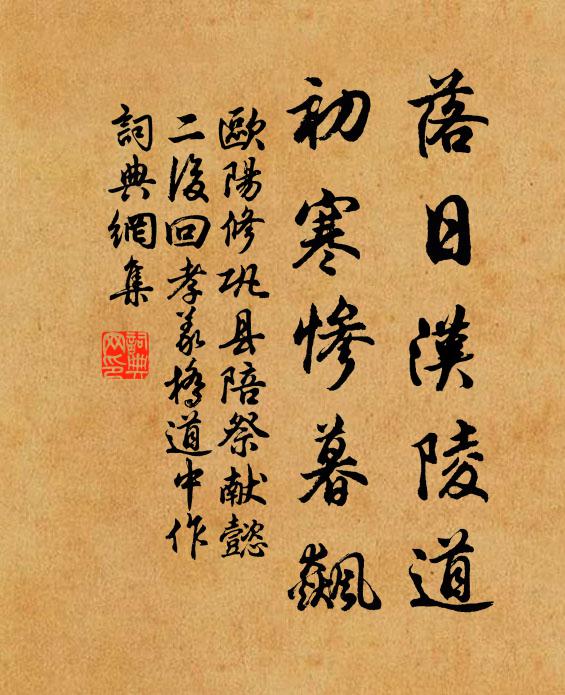 落日漢陵道
初寒慘暮飙
歐陽修巩县陪祭献懿
二後回孝義橋道中作
詞典網集
詞典
网印